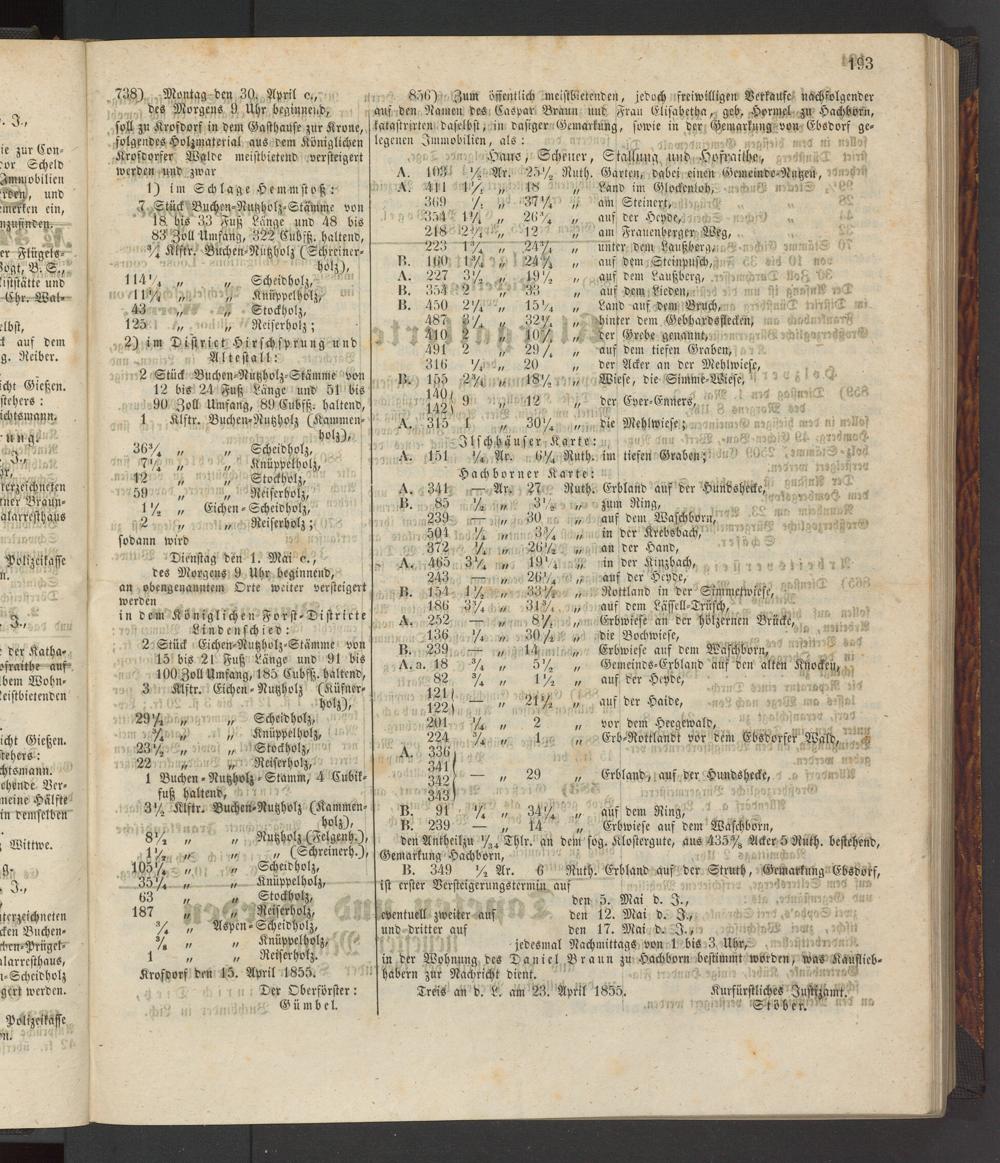 . J.,
ie zur Con-
or Scheld
Immobilien
rden, und
emerken ein,
nzufinden.
er Flügels-
Vogt, B. S.,
stätte und
Chr. Wal-
elbst,
auf dem
g. Reiber.
icht Gießen.
stehers:
ichtsmann.
rung.
J.,
terzeichneten
tner Braun-
alarresthaus
Polizeikasse
n.
J.,
der Katha-
ofraithe auf
bem Wohn-
eistbietenden
icht Gießen.
tehers:
chtsmann.
ehende Ver-
meine Hälfte
in demselben
Wittwe.
g.
J.,
terzeichneten
cken Buchen-
chen-Prügel-
alarresthaus,
n-Scheidholz
gert werden.
Polizeikasse
n.
193
738) Montag den 30. April c.,
des Morgens 9 Uhr beginnend,
soll zu Krofdorf in dem Gasthause zur Krone,
folgendes Holzmaterial aus dem Königlichen
Krofdorfer Walde meistbietend versteigert
werden und zwar
1) im Schlage Hemmstoß:
7 Stück Buchen-Nutzholz-Stämme von
18 bis 33 Fuß Länge und 48 bis
83 Zoll Umfang, 322 Cubfß. haltend,
3/4 Klftr. Buchen-Nutzholz (Schreiner-
holz),
114 1/4 „ „ Scheidholz,
11 1/4 „ „ Knüppelholz,
43 „ „ Stockholz,
125 „ „ Reiserholz;
2) im District Hirschsprung und
Altestall:
2 Stück Buchen-Nutzholz-Stämme von
12 bis 24 Fuß Länge und 51 bis
90 Zoll Umfang, 89 Cubfß. haltend,
1 Klftr. Buchen-Nutzholz (Kammen-
holz),
36 3/4 „ „ Scheidholz,
7 1/4 „ „ Knüppelholz,
12 „ „ Stockholz,
59 „ „ Reiserholz,
1 1/2 „ Eichen-Scheidholz,
2 „ „ Reiserholz;
sodann wird
Dienstag den 1. Mai c.,
des Morgens 9 Uhr beginnend,
an obengenanntem Orte weiter versteigert
werden
in dem Königlichen Forst-Districte
Lindenschied:
2 Stück Eichen-Nutzholz-Stämme von
15 bis 21 Fuß Länge und 91 bis
100 Zoll Umfang, 185 Cubfß. haltend,
3 Klftr. Eichen-Nutzholz (Küfner-
holz),
29 1/4 „ „ Scheidholz,
3/4 „ „ Knüppelholz,
23 1/2 „ „ Stockholz,
22 „ „ Reiserholz,
1 Buchen-Nutzholz-Stamm, 4 Cubik-
fuß haltend,
3 1/2 Klftr. Buchen-Nutzholz (Kammen-
holz),
8 1/2 „ „ Nutzholz (Felgenh.),
1 1/2 „ „ „ (Schreinerh.),
105 1/4 „ „ Scheidholz,
35 1/4 „ „ Knüppelholz,
63 „ „ Stockholz,
187 „ „ Reiserholz,
3/4 „ Aspen-Scheidholz,
3/8 „ „ Knüppelholz,
1 „ „ Reiserholz.
Krofdorf den 15. April 1855.
Der Oberförster:
Gümbel.
856) Zum öffentlich meistbietenden, jedoch freiwilligen Verkaufe nachfolgender
auf den Namen des Caspar Braun und Frau Elisabetha, geb. Hormel zu Hachborn,
katastrirten daselbst, in dasiger Gemarkung, sowie in der Gemarkung von Ebsdorf ge-
legenen Immobilien, als:
Haus, Scheuer, Stallung und Hofraithe,
A. 103 1/2 Ar. 25 1/2 Ruth. Garten, dabei einen Gemeinds-Nutzen,
A. 411 1 1/2 „ 18 „ Land im Glockenloh,
369 „ 37 1/4 „ am Steinert,
354 1 1/4 „ 26 3/4 „ auf der Heyde,
218 2 1/4 „ 12 „ am Frauenberger Weg,
223 1 3/4 „ 24 3/4 „ unter dem Lautzberg,
B. 160 1 3/4 „ 24 3/4 „ auf dem Steinpusch,
A. 227 3 1/2 „ 19 1/2 „ auf dem Lautzberg,
B. 354 2 „ 33 „ auf dem Lieden,
B. 450 2 1/4 „ 15 1/4 „ Land auf dem Bruch,
487 3 1/4 „ 32 1/4 „ hinter dem Gebhardsflecken,
410 2 „ 10 1/2 „ der Grebe genannt,
491 2 „ 29 1/4 „ auf dem tiefen Graben,
316 1/4 „ 20 „ der Acker an der Mehlwiese,
B. 155 2 3/4 „ 18 1/2 „ Wiese, die Simms-Wiese,
140
142 } 9 „ 12 „ der Ever-Enners,
A. 315 1 „ 30 1/4 „ die Mehlwiese;
Ilschhäuser Karte:
A. 151 1/4 Ar. 6 1/4 Ruth. im tiefen Graben;
Hachborner Karte:
A. 341 — Ar. 27 Ruth. Erbland auf der Hundshecke,
B. 85 1/2 „ 3 1/2 „ zum Ring,
239 — „ 30 „ auf dem Waschborn,
504 1/2 „ 3 3/4 „ in der Krebsbach,
372 1/4 „ 26 1/2 „ an der Hand,
A. 465 3 1/4 „ 19 1/4 „ in der Kinzbach,
243 — „ 26 1/4 „ auf der Heyde,
B. 154 1 1/2 „ 33 1/2 „ Rottland in der Simmetwiese,
186 3 3/4 „ 31 3/4 „ auf dem Lässell-Trüsch,
A. 252 — „ 8 1/4 „ Erbwiese an der hölzernen Brücke,
136 1/4 „ 30 1/2 „ die Bochwiese,
B. 239 — „ 14 „ Erbwiese auf dem Waschborn,
A. a. 18 3/4 „ 5 1/2 „ Gemeinds-Erbland auf den alten Knocken,
82 3/4 „ 1 1/2 „ auf der Heyde,
121
122 } — „ 21 1/2 „ auf der Haide,
201 1/4 „ 2 „ vor dem Heegewald,
224 3/4 „ 1 „ Erb-Rottlandt vor dem Ebsdorfer Wald,
A. 336
341
342
343 } — „ 29 „ Erbland, auf der Hundshecke,
B. 91 1/4 „ 34 1/4 „ auf dem Ring,
B. 239 — „ 14 „ Erbwiese auf dem Waschborn,
den Antheil zu 1/34 Thlr. an dem sog. Klostergute, aus 435 5/8 Acker 5 Ruth. bestehend,
Gemarkung Hachborn,
B. 349 1/2 Ar. 6 Ruth. Erbland auf der Struth, Gemarkung Ebsdorf,
ist erster Versteigerungstermin auf
den 5. Mai d. J.,
eventuell zweiter auf den 12. Mai d. J.,
und dritter auf den 17. Mai d. J.,
jedesmal Nachmittags von 1 bis 3 Uhr,
in der Wohnung des Daniel Braun zu Hachborn bestimmt worden, was Kauflieb-
habern zur Nachricht dient.
Treis an d. L. am 23. April 1855. Kurfürstliches Justizamt.
Stöber.